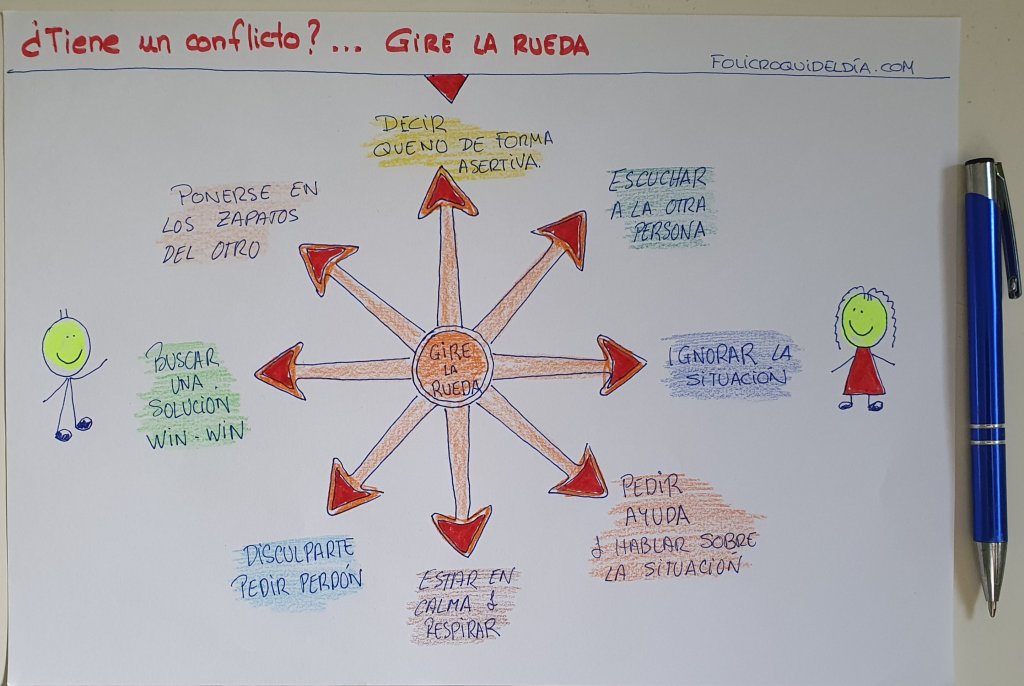 ¿Tiene un conflicto?... GIRE LA RUEDA
FOLICROQUIDELDÍA.COM
DECIR
QUE NO DE FORMA
ASERTIVA.
ESCUCHAR
A LA OTRA
PERSONA
IGNORAR LA
SITUACIÓN
PEDIR
AYUDA
& HABLAR SOBRE
LA SITUACIÓN
ESTAR EN
CALMA &
RESPIRAR
DISCULPARTE
PEDIR PERDÓN
BUSCAR
UNA
SOLUCIÓN
WIN-WIN
PONERSE EN
LOS ZAPATOS
DEL OTRO
GIRE
LA
RUEDA